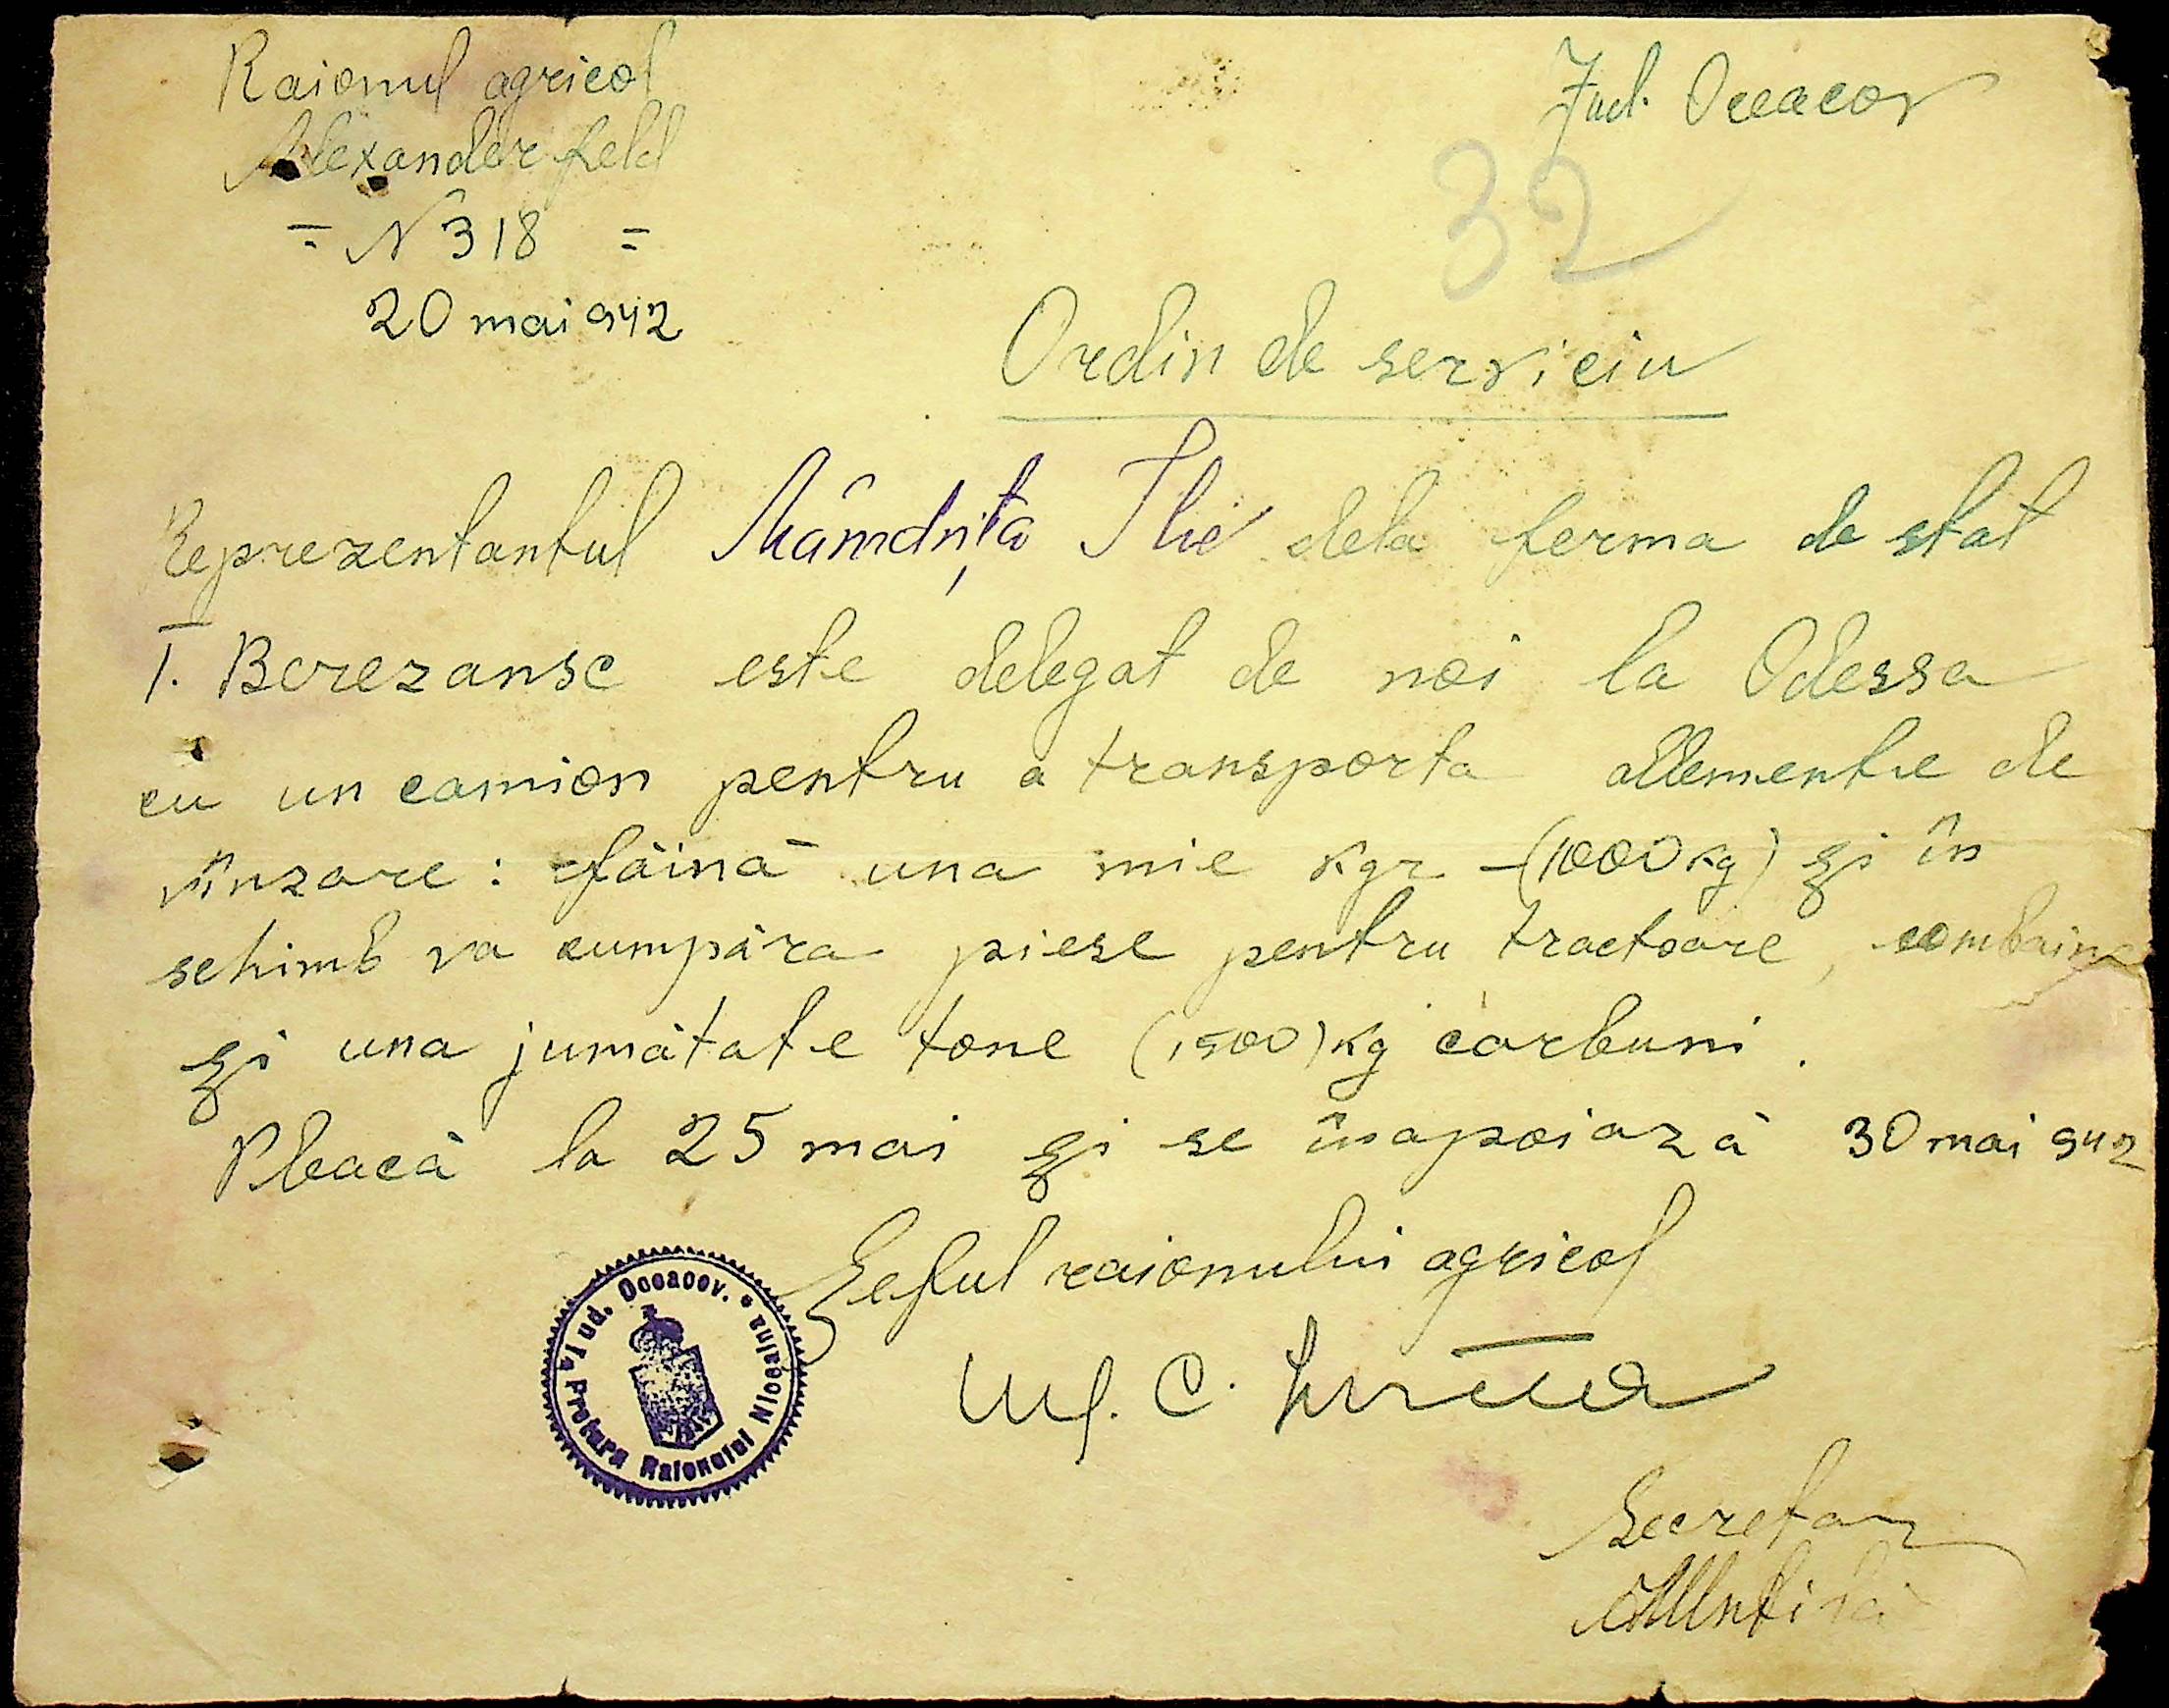 Raionul agricol
Alexanderfeld
= N 318 =
20 mai 942
Jud. Oceacov
32
Ordin de serviciu
Reprezentantul Mândrița Ilie dela ferma de stat
I. Berezansc este delegat de noi la Odessa
cu un camion pentru a transporta allemente de
vînzare: făină una mie kgr -(1000 kg) și în
schimb va cumpăra piese pentru tractoare, combaine
și una jumătate tone (1500) kg cărbuni.
Pleacă la 25 mai și se înapoiază 30 mai 942
Șeful raionului agricol
C.
Secretar
Jud. Oceacov. • Pretura Raionului Nicoaina